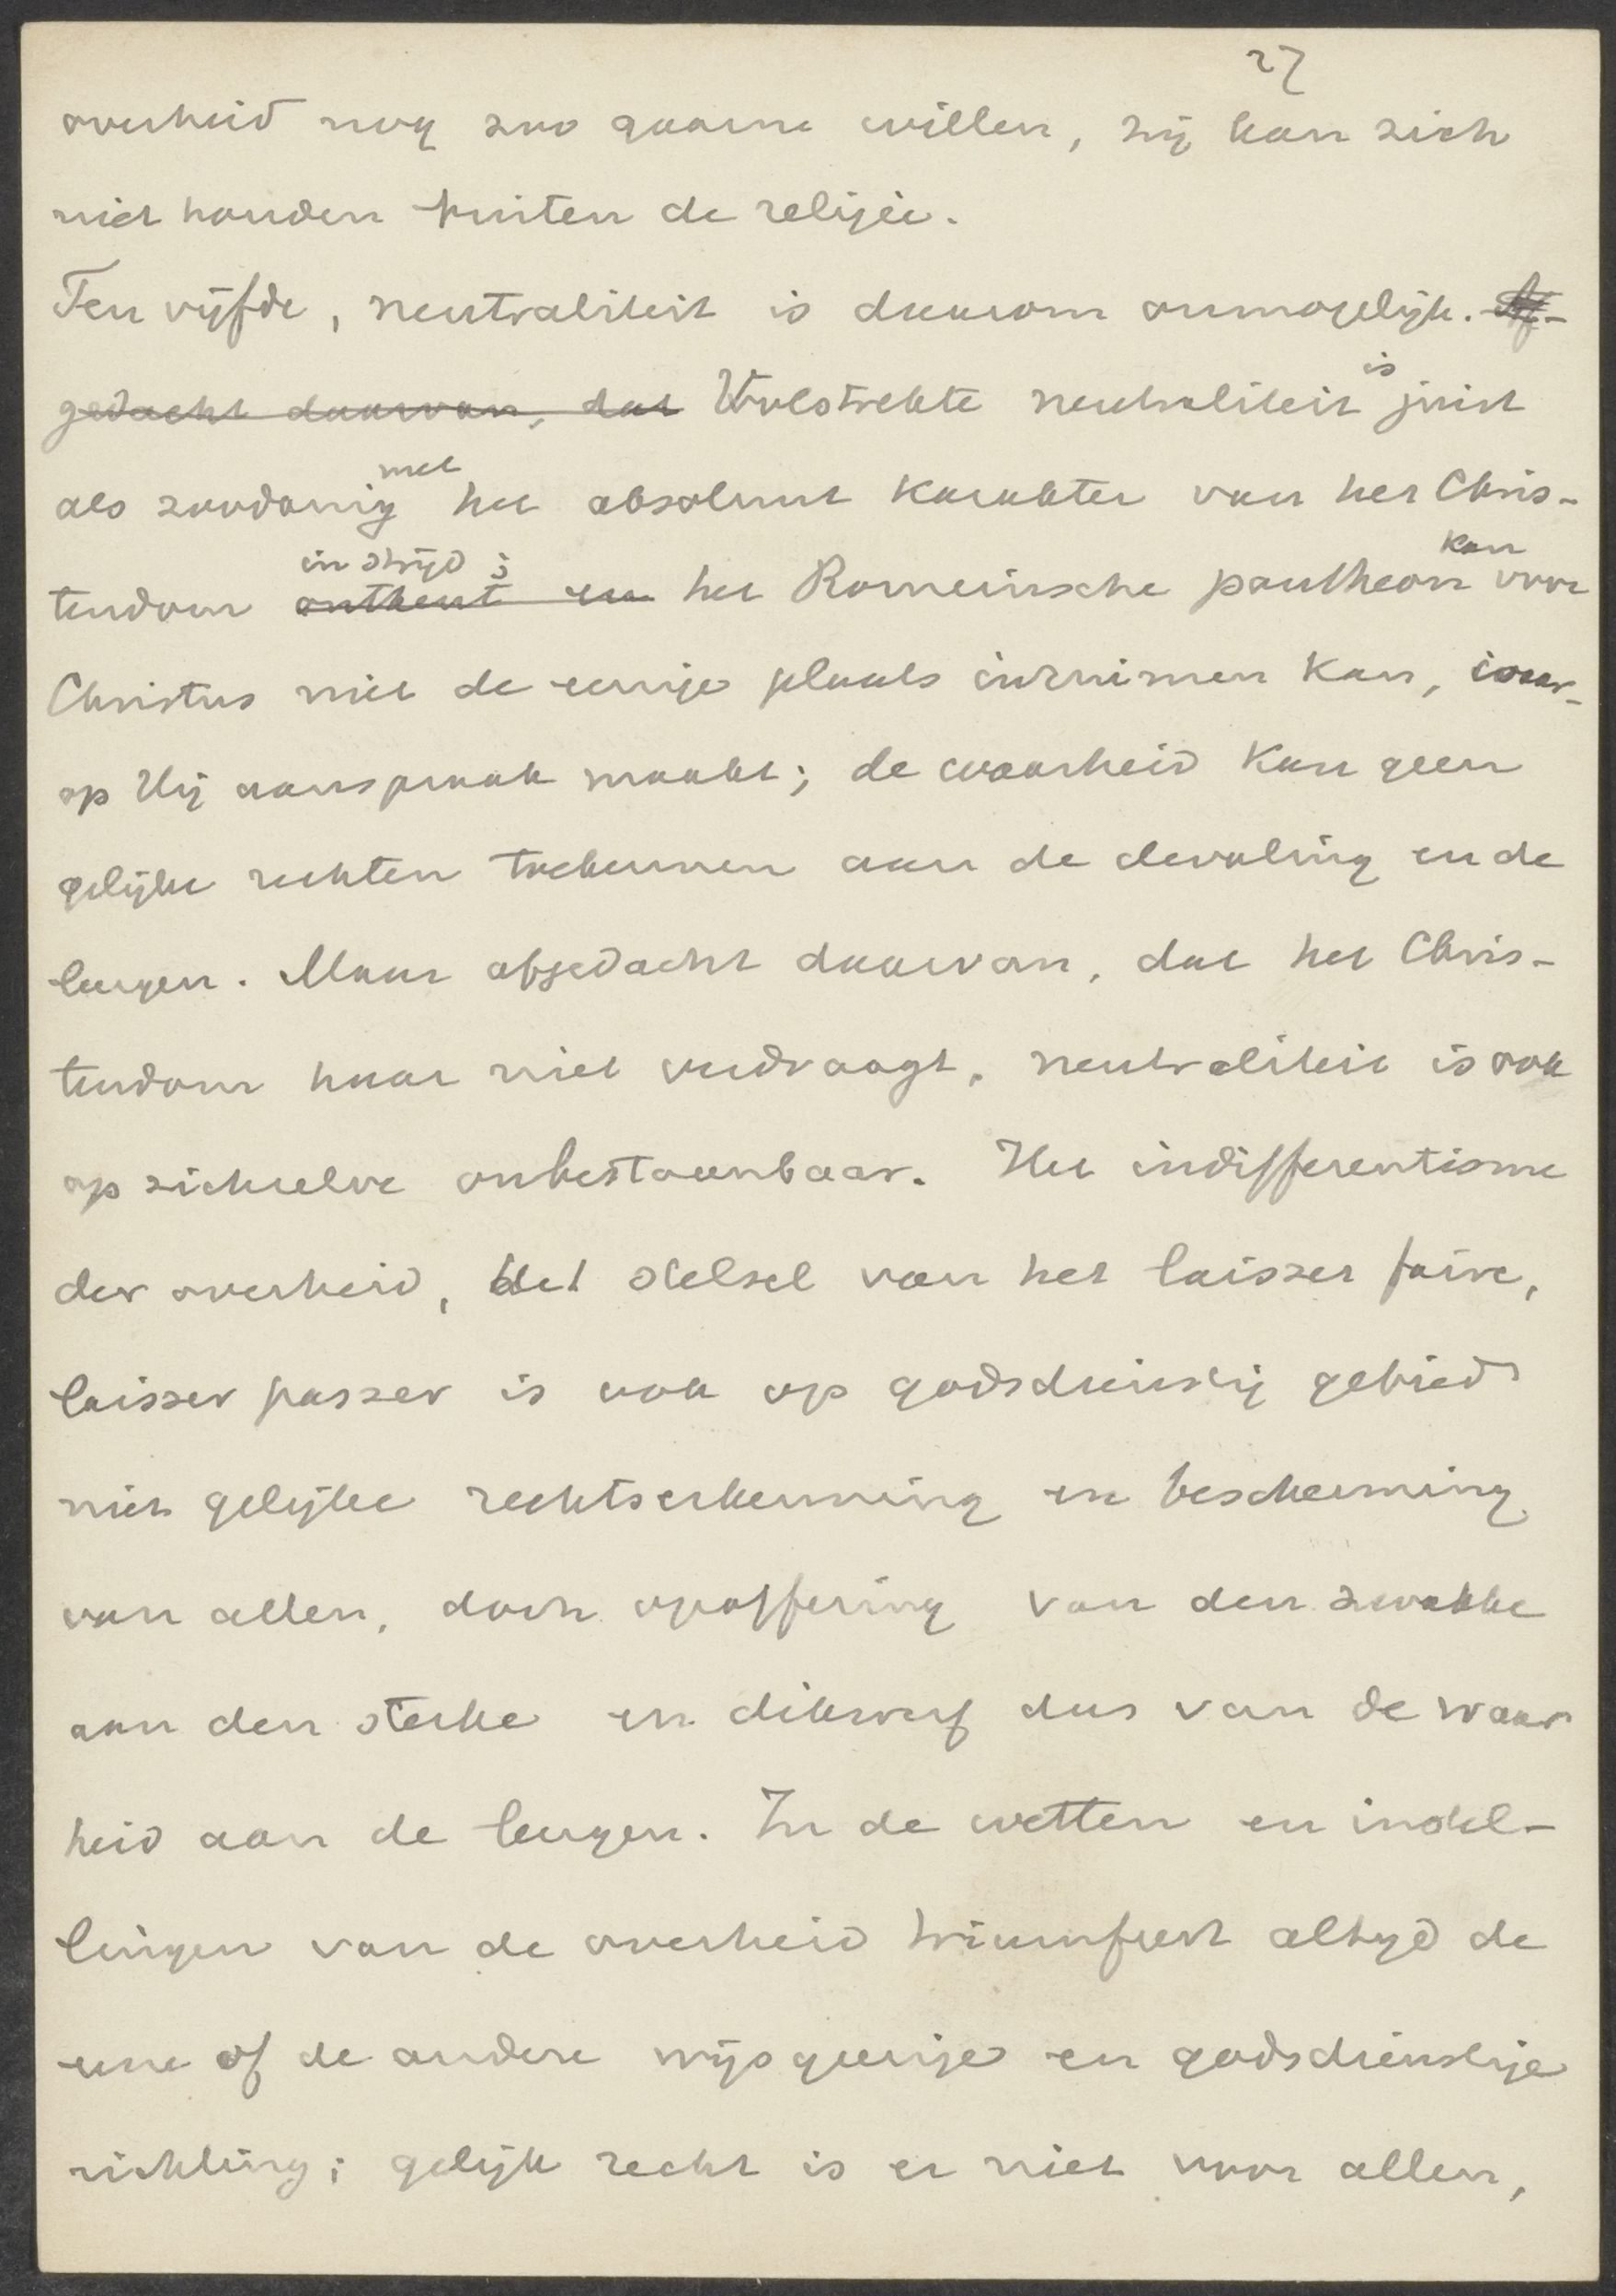 27
overheid nog zoo gaarne willen, zij kan zich
niet houden buiten de religie.
Ten vijfde, neutraliteit is daarom onmogelijk. Af-
gedacht daarvan, dat Volstrekte neutraliteit is juist
als zoodanig met het absoluut karakter van het Chris-
tendom ontkent en in strijd; het Romeinsche pantheon kan voor
Christus niet de eenige plaats inruimen kan, waar-
op Hij aanspraak maakt; de waarheid kan geen
gelijke rechten toekennen aan de dwaling en de
leugen. Maar afgedacht daarvan, dat het Chris-
tendom haar niet verdraagt, neutraliteit is ook
op zichzelve onbestaanbaar. Het indifferentisme
der overheid, het stelsel van het laisser faire,
laisser passer is ook op godsdienstig gebied
niet gelijke rechtserkenning en bescherming
van allen, doch opoffering van den zwakke
aan den sterke en dikwerf dus van de waar
heid aan de leugen. In de wetten en instel-
lingen van de overheid triumfeert altijd de
eene of de andere wijsgeerige en godsdienstige
richting; gelijk recht is er niet voor allen,